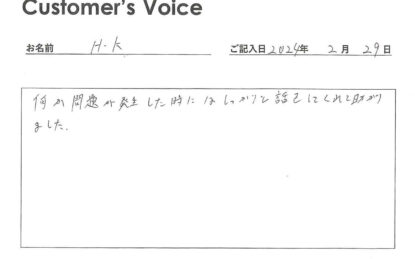 Customer's Voice
お名前 H-K ご記入日 2024年 2月 29日
何か問題が発生した時にはしっかりと話をしてくれて助かり
ました.